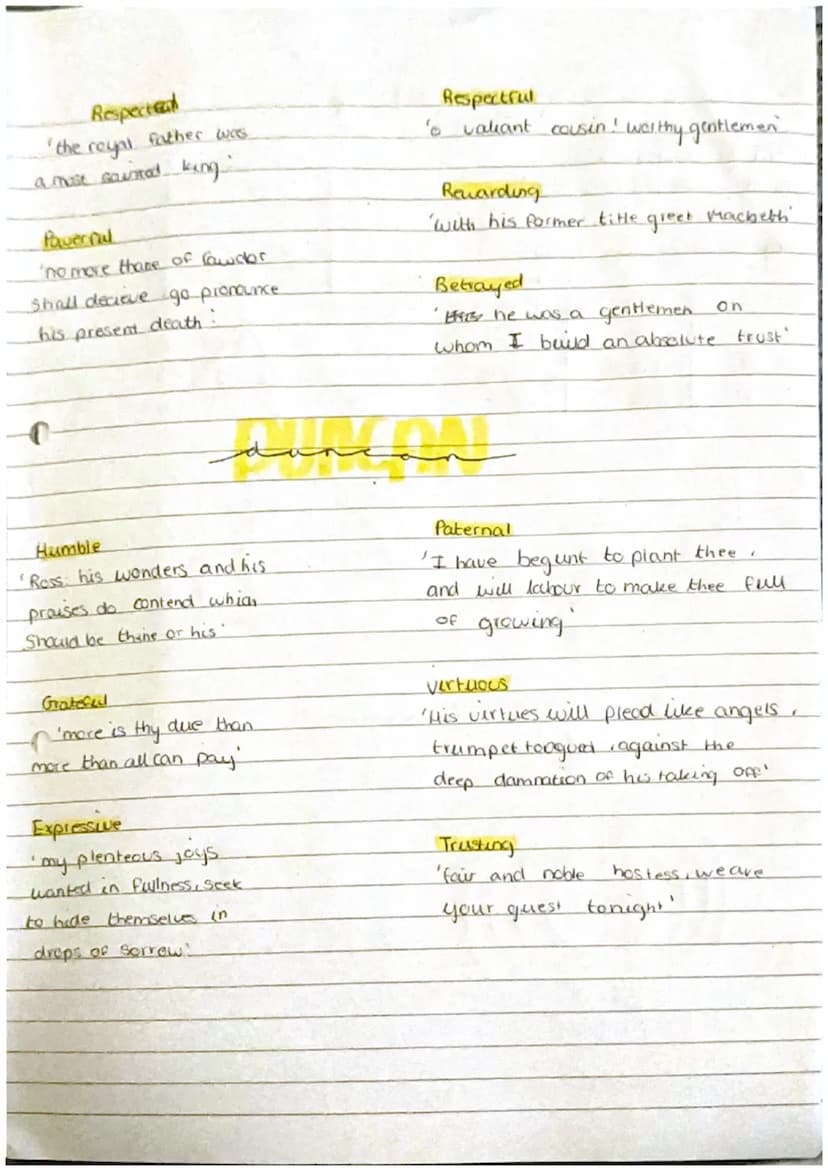 Respected
'the royal father was
a most sainted king'
Powerful
'no more thane of Cawdor
shall decieve go pronounce
his present death'
Respectful
'o valiant cousin! worthy gentlemen'
Rewarding
'with his former title greet Macbeth'
Betrayed
' he was a gentlemen on
whom I build an absolute trust'
DUNCAN
duncan
Humble
'Ross: his wonders and his
praises do contend which
should be thine or his'
Grateful
'more is thy due than
more than all can pay'
Expressive
'my plenteous joys
wanted in fullness, seek
to hide themselves in
drops of sorrow'
Paternal
'I have begunt to plant thee,
and will labour to make thee full
of growing'
Virtuous
'His virtues will plead like angels,
trumpet tongued, against the
deep damnation of his taking off'
Trusting
'fair and noble hostess, we are
your guest tonight'